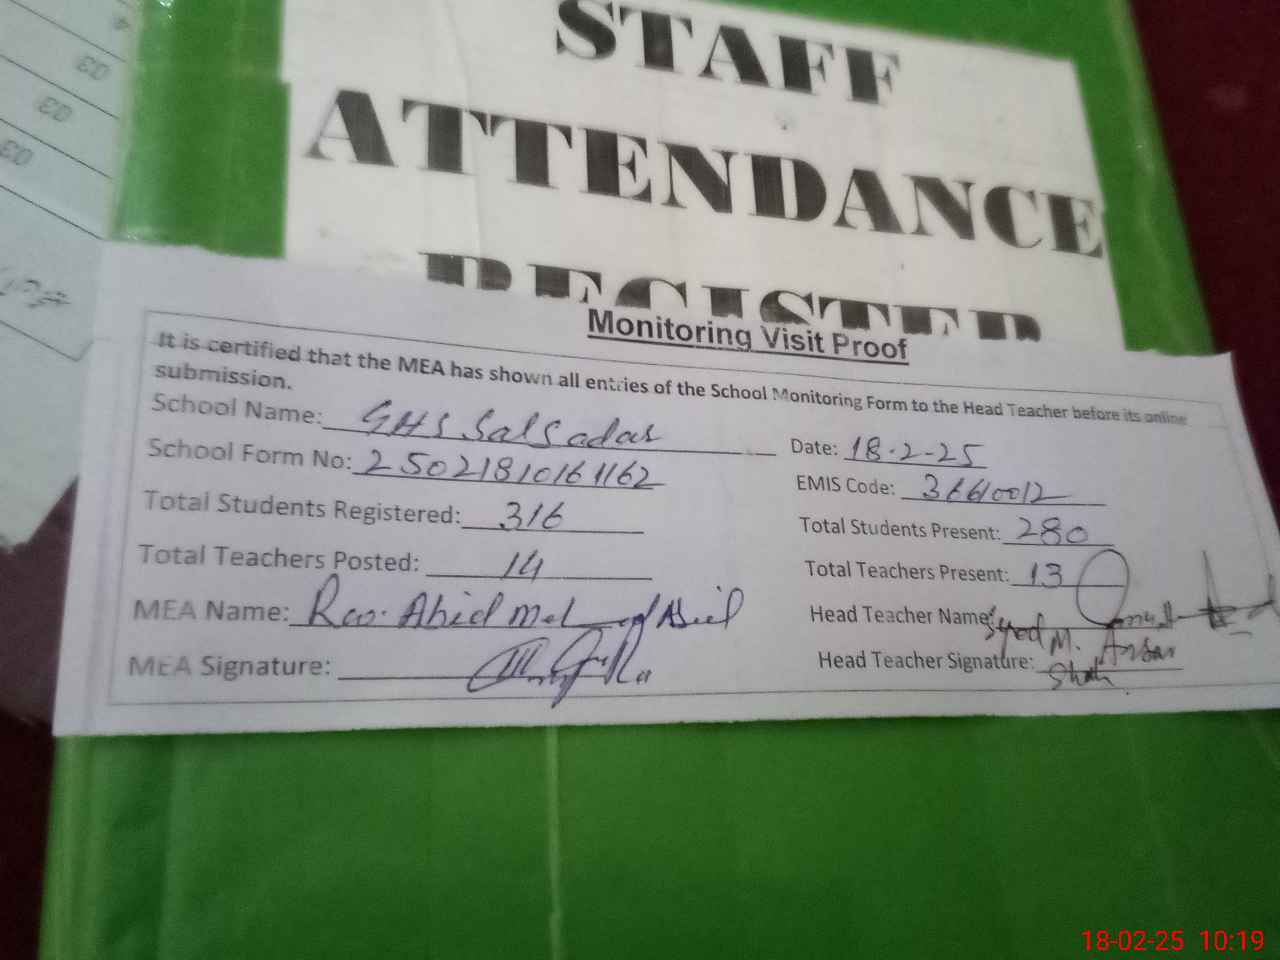 STAFF
ATTENDANCE
REGISTER
Monitoring Visit Proof
It is certified that the MEA has shown all entries of the School Monitoring Form to the Head Teacher before its online
submission.
School Name: GHS Salsadar
Date: 18-2-25
School Form No: 25021810161162
EMIS Code: 36610012
Total Students Registered: 316
Total Students Present: 280
Total Teachers Posted: 14
Total Teachers Present: 13
MEA Name: Rao Abid
Head Teacher Name: Syed M. Ansar
Shah
MEA Signature:
Head Teacher Signature:
03
03
03
18-02-25 10:19